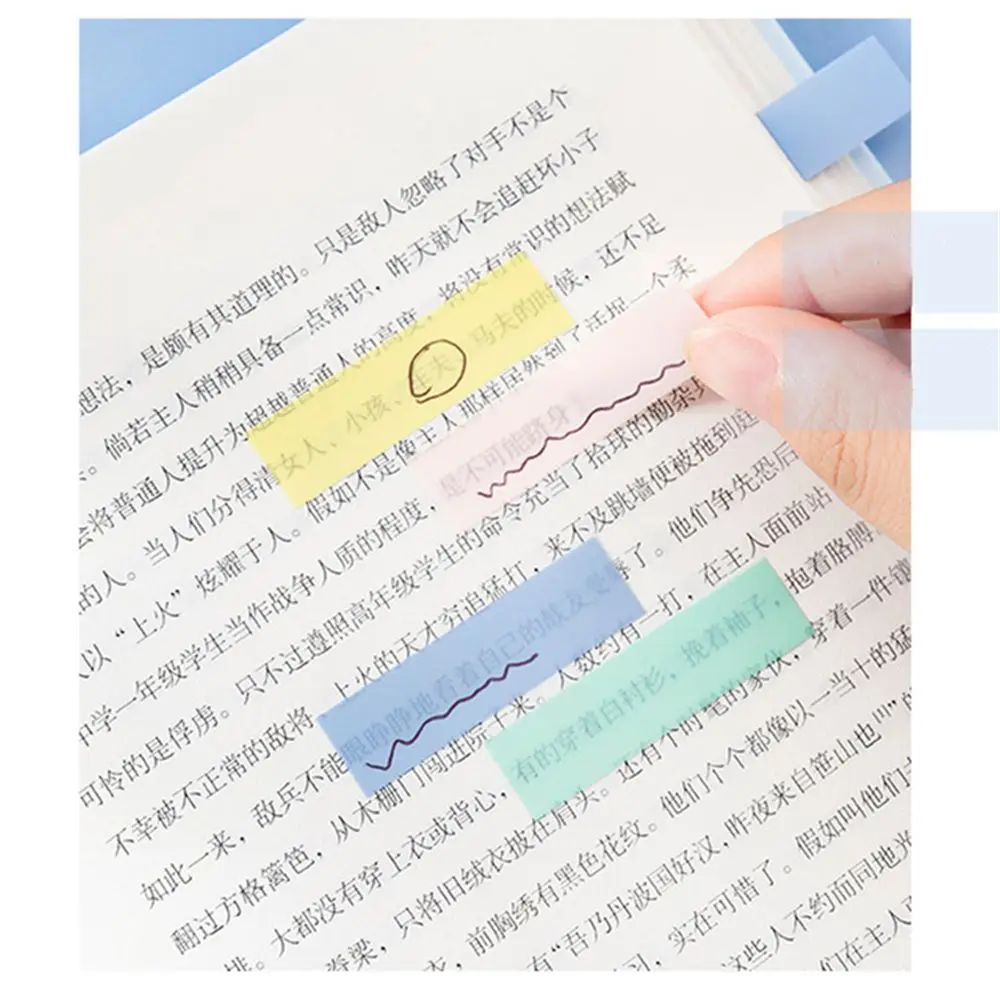 想法，是颇有其道理的。只是敌人忽略了对手不是个
倘若主人稍稍具备一点常识，昨天就不会追赶坏小子
会将普通人提升为超越普通人的高度，将没有常识的想法赋
的人。当人们分得清女人、小孩、车夫、马夫的时候，还不足
以“上火”炫耀于人。假如不是像主人那样居然到了活捉一个柔
中学一年级学生当作战争人质的程度，是不可能跻身
可怜的是俘虏。只不过遵照高年级学生的命令充当了拾球的勤杂兵
不幸被不正常的敌将、上火的天才穷追猛打，来不及跳墙便被拖到庭
如此一来，敌兵不能眼睁睁地看着自己的战友受辱了。他们争先恐后
翻过方格篱笆，从木栅门闯进院子来。人数约有一打，在主人面前站
排。大都没有穿上衣或背心，有的穿着白衬衫，挽着袖子，抱着胳膊
脊梁，只将旧绒衣披在肩头。还有个时髦的家伙，穿着一件镶
衣，前胸绣有黑色花纹。他们个个都像以一当十的猛
有“吾乃丹波国好汉，昨夜来自笹山也”的
习，实在可惜了。假如叫他们
这些人不约而同地光
们在主人